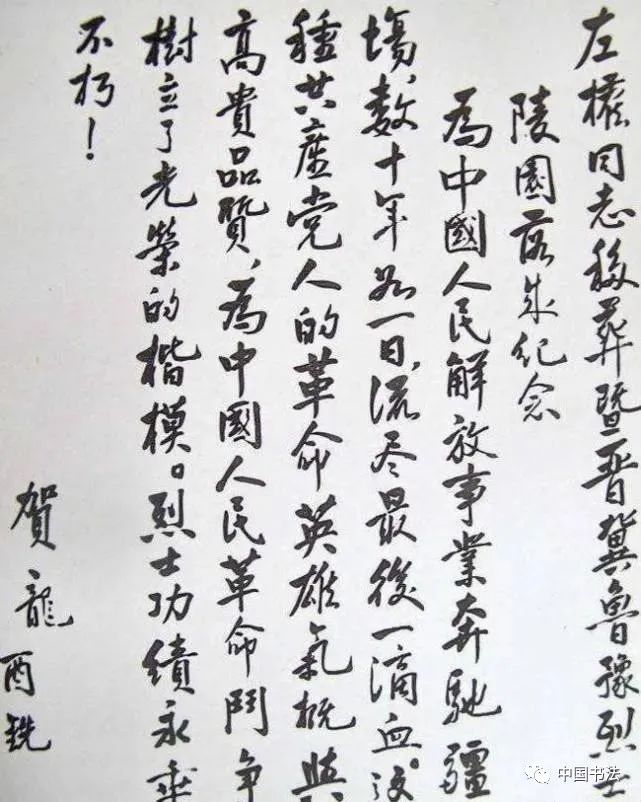 左權同志移葬暨晋冀魯豫烈士
陵園落成紀念
為中國人民解放事業奔馳疆
場,數十年如一日,流尽最後一滴血。这
種共產党人的革命英雄氣概與
高貴品質,為中國人民革命鬥争
樹立了光榮的楷模。烈士功績永垂
不朽!
賀龍 酉銑
中国书法